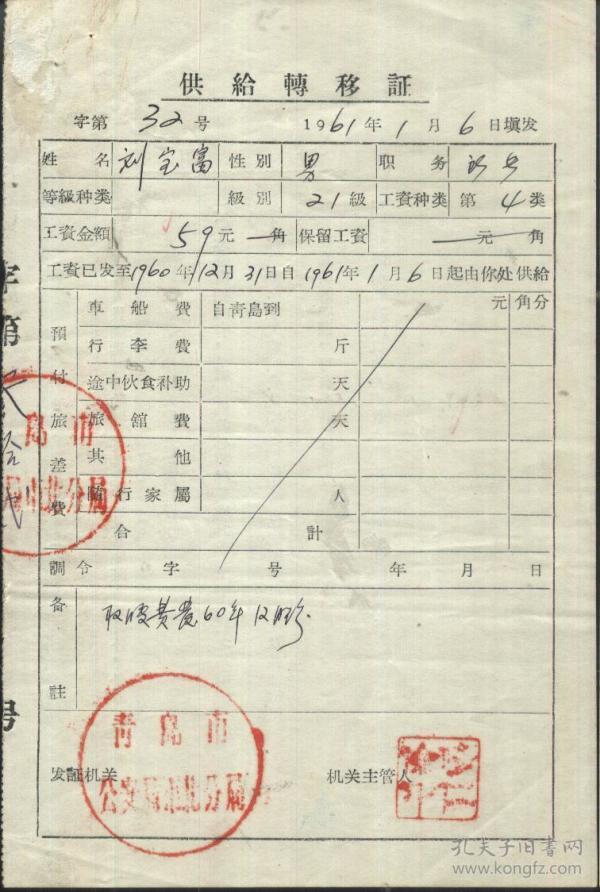 供給轉移証
字第 32 号 1961年 1 月 6 日填发
姓名 刘宝富 性别 男 职务
等級种类 級别 21級 工資种类 第 4 类
工資金額 59 元 一角 保留工資 一元 角
工資已发至1960年12月31日自1961年1月6日起由你处供給
預付旅差費
車船費 自青島到 元角分
行李費 斤
途中伙食补助 天
旅館費 天
其他
随行家屬 人
合計
調令 字 号 年 月 日
备註
60年
发証机关
机关主管人
青島市
公安局市北分局
字第
号
島市
局市北分局
孔夫子旧書网
www.kongfz.com